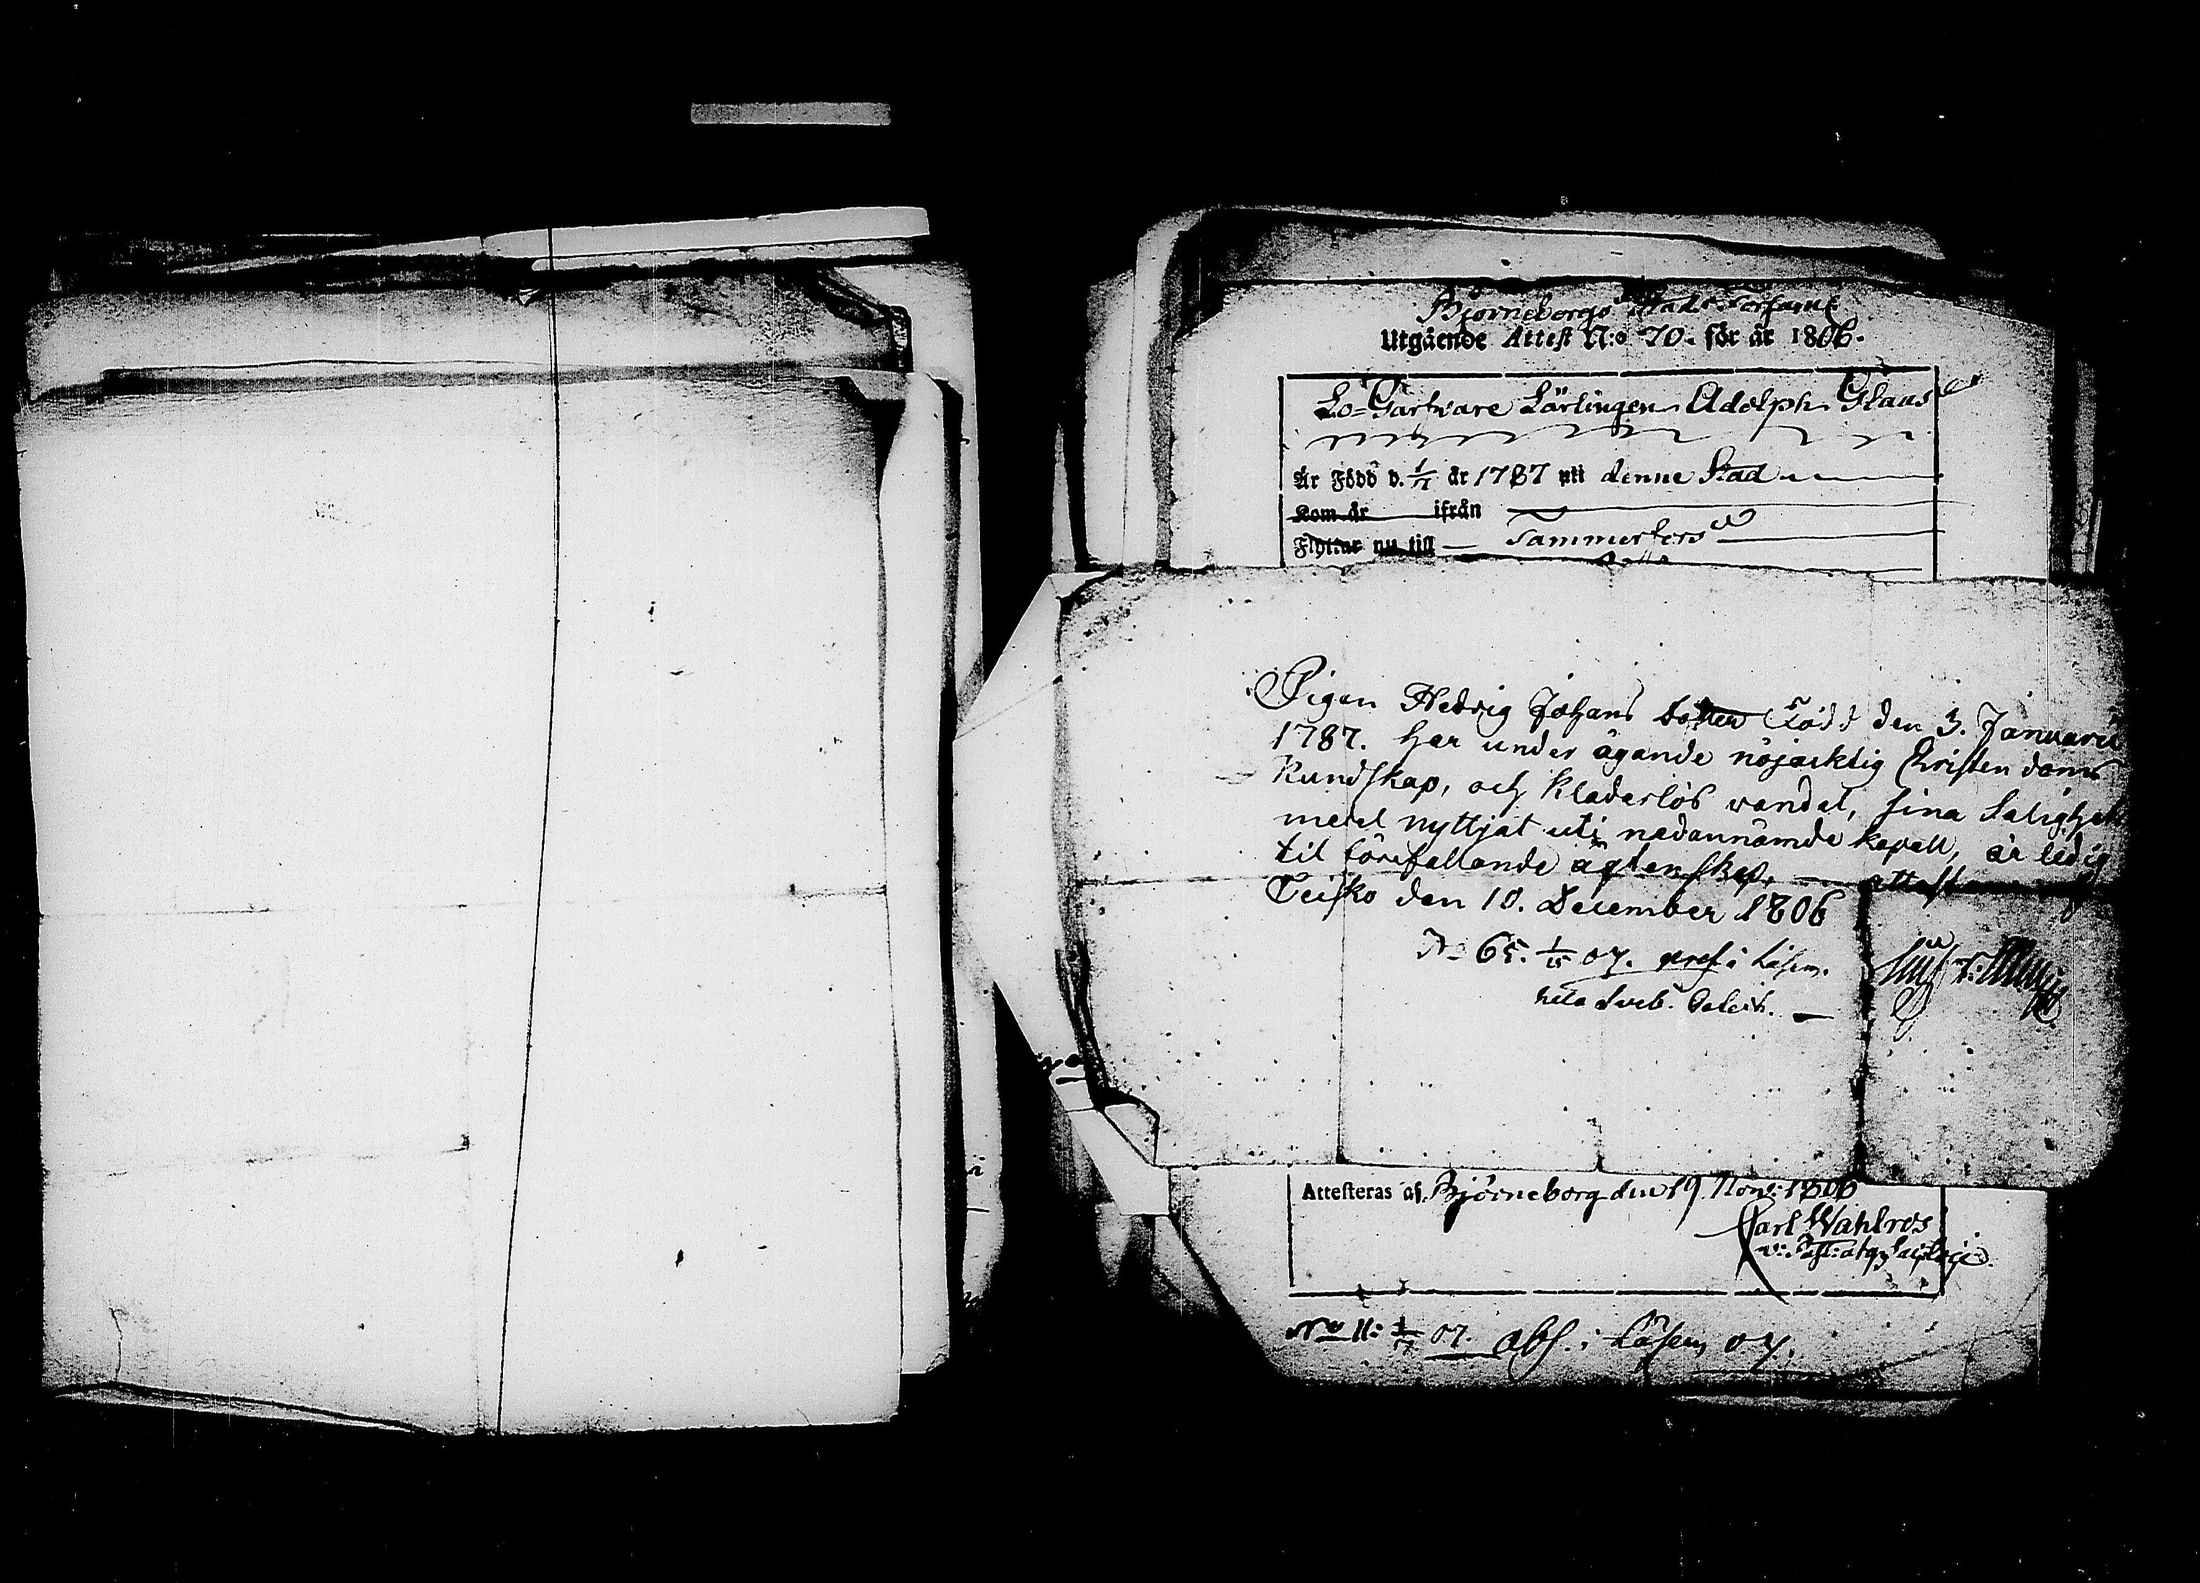 Björneborgs Stads Församl
Utgående Attest N:o 70. för år 1806.
Lo-Garfvare Lärlingen Adolph Glaas
Är Född d. 1/1 år 1787 uti denne Stad
Kom år ifrån
Flyttar nu till Tammerfors
Pigan Hedvig Johans dotter Född den 3. Januarii
1787. har under ägande nöjacktig Christendoms
Kundskap, och Kladerlös vandel, sina Salighets
medel nyttjat uti nedannämde kapell, är ledig
til förefallande ägtenskap. attest
Teisko den 10. December 1806
No 65. 1/15 07. pres. i Läsem.
Attesteras af. Björneborg den 19 Nov: 1806
Carl Wahlros
v: Past:
No 11: 07. abs. i Läsem 07.